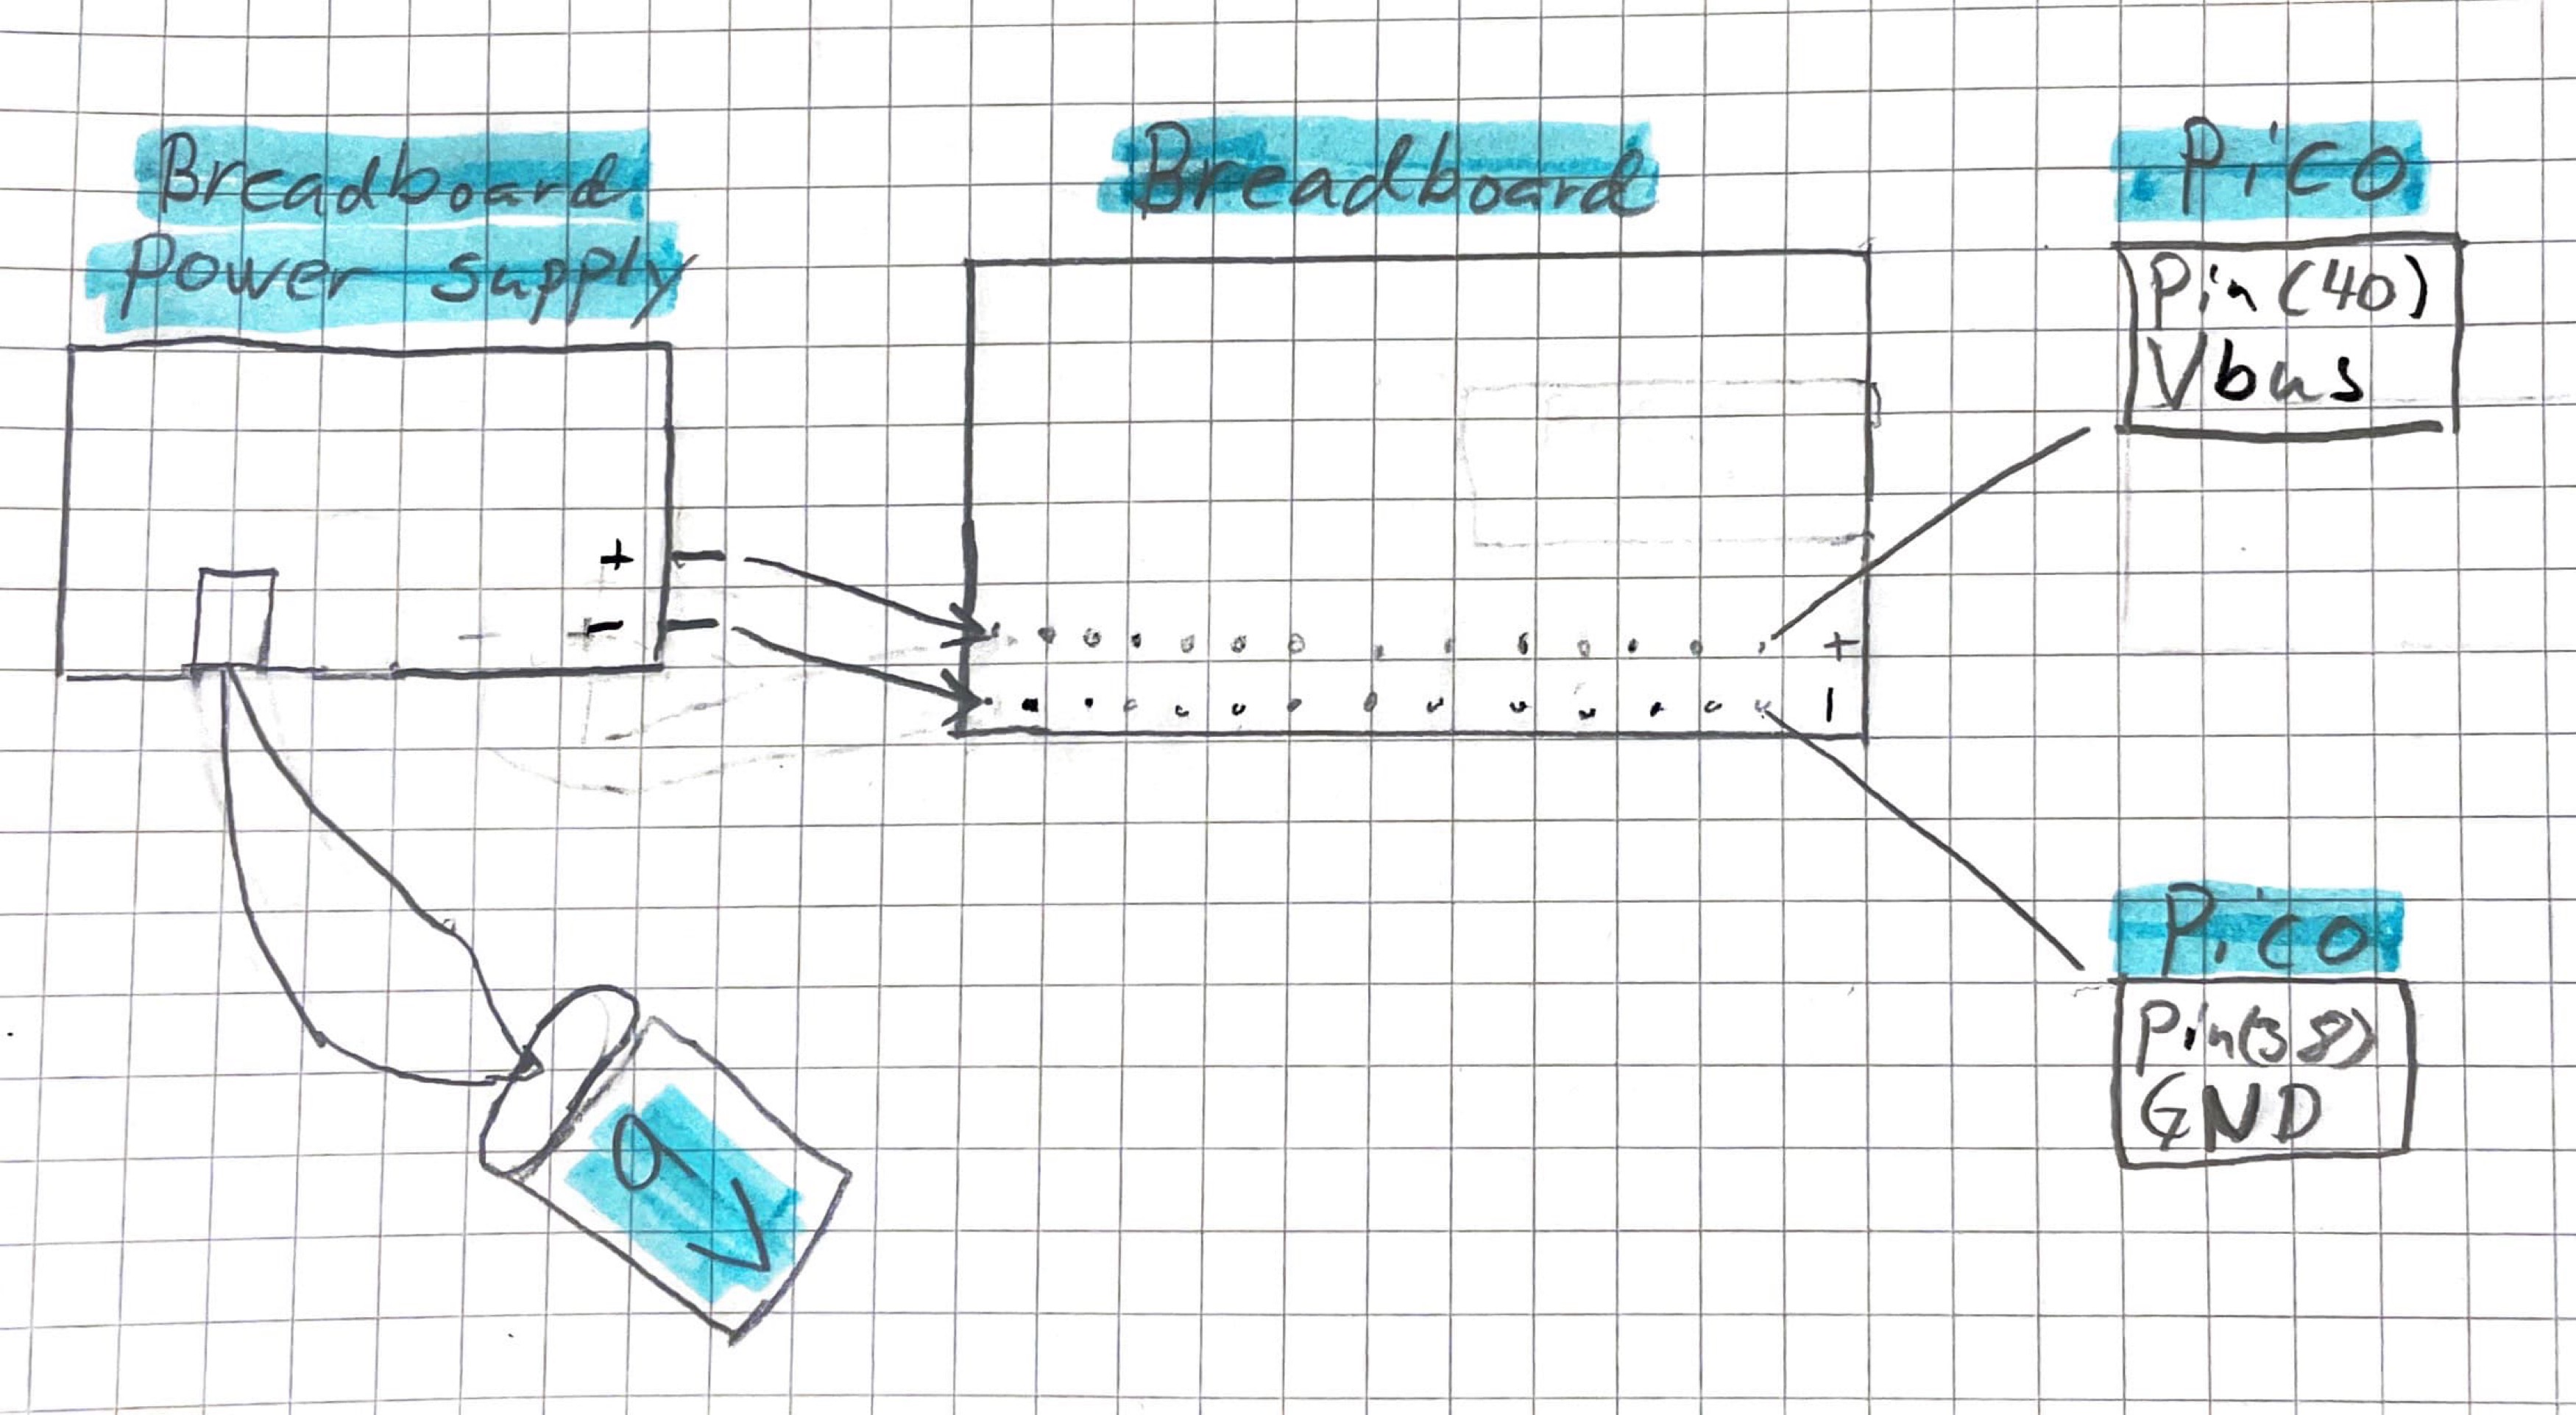 Breadboard
Power supply
+
-
9V
Breadboard
+
|
Pico
Pin(40)
Vbus
Pico
Pin(38)
GND